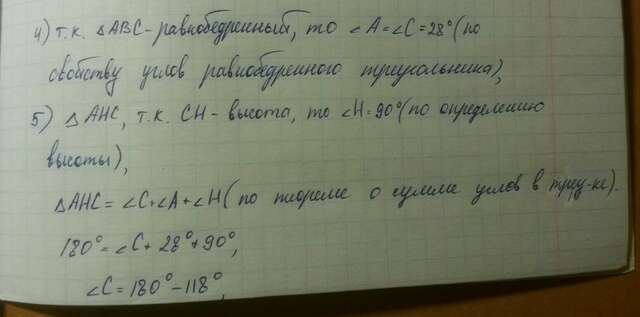 4) т.к. △ABC - равнобедренный, то ∠A = ∠C = 28° (по
свойству углов равнобедренного треугольника),
5) △AHC, т.к. CH - высота, то ∠H = 90° (по определению
высоты),
△AHC = ∠C + ∠A + ∠H ( по теореме о сумме углов в треу-ке).
180° = ∠C + 28° + 90°,
∠C = 180° - 118°,